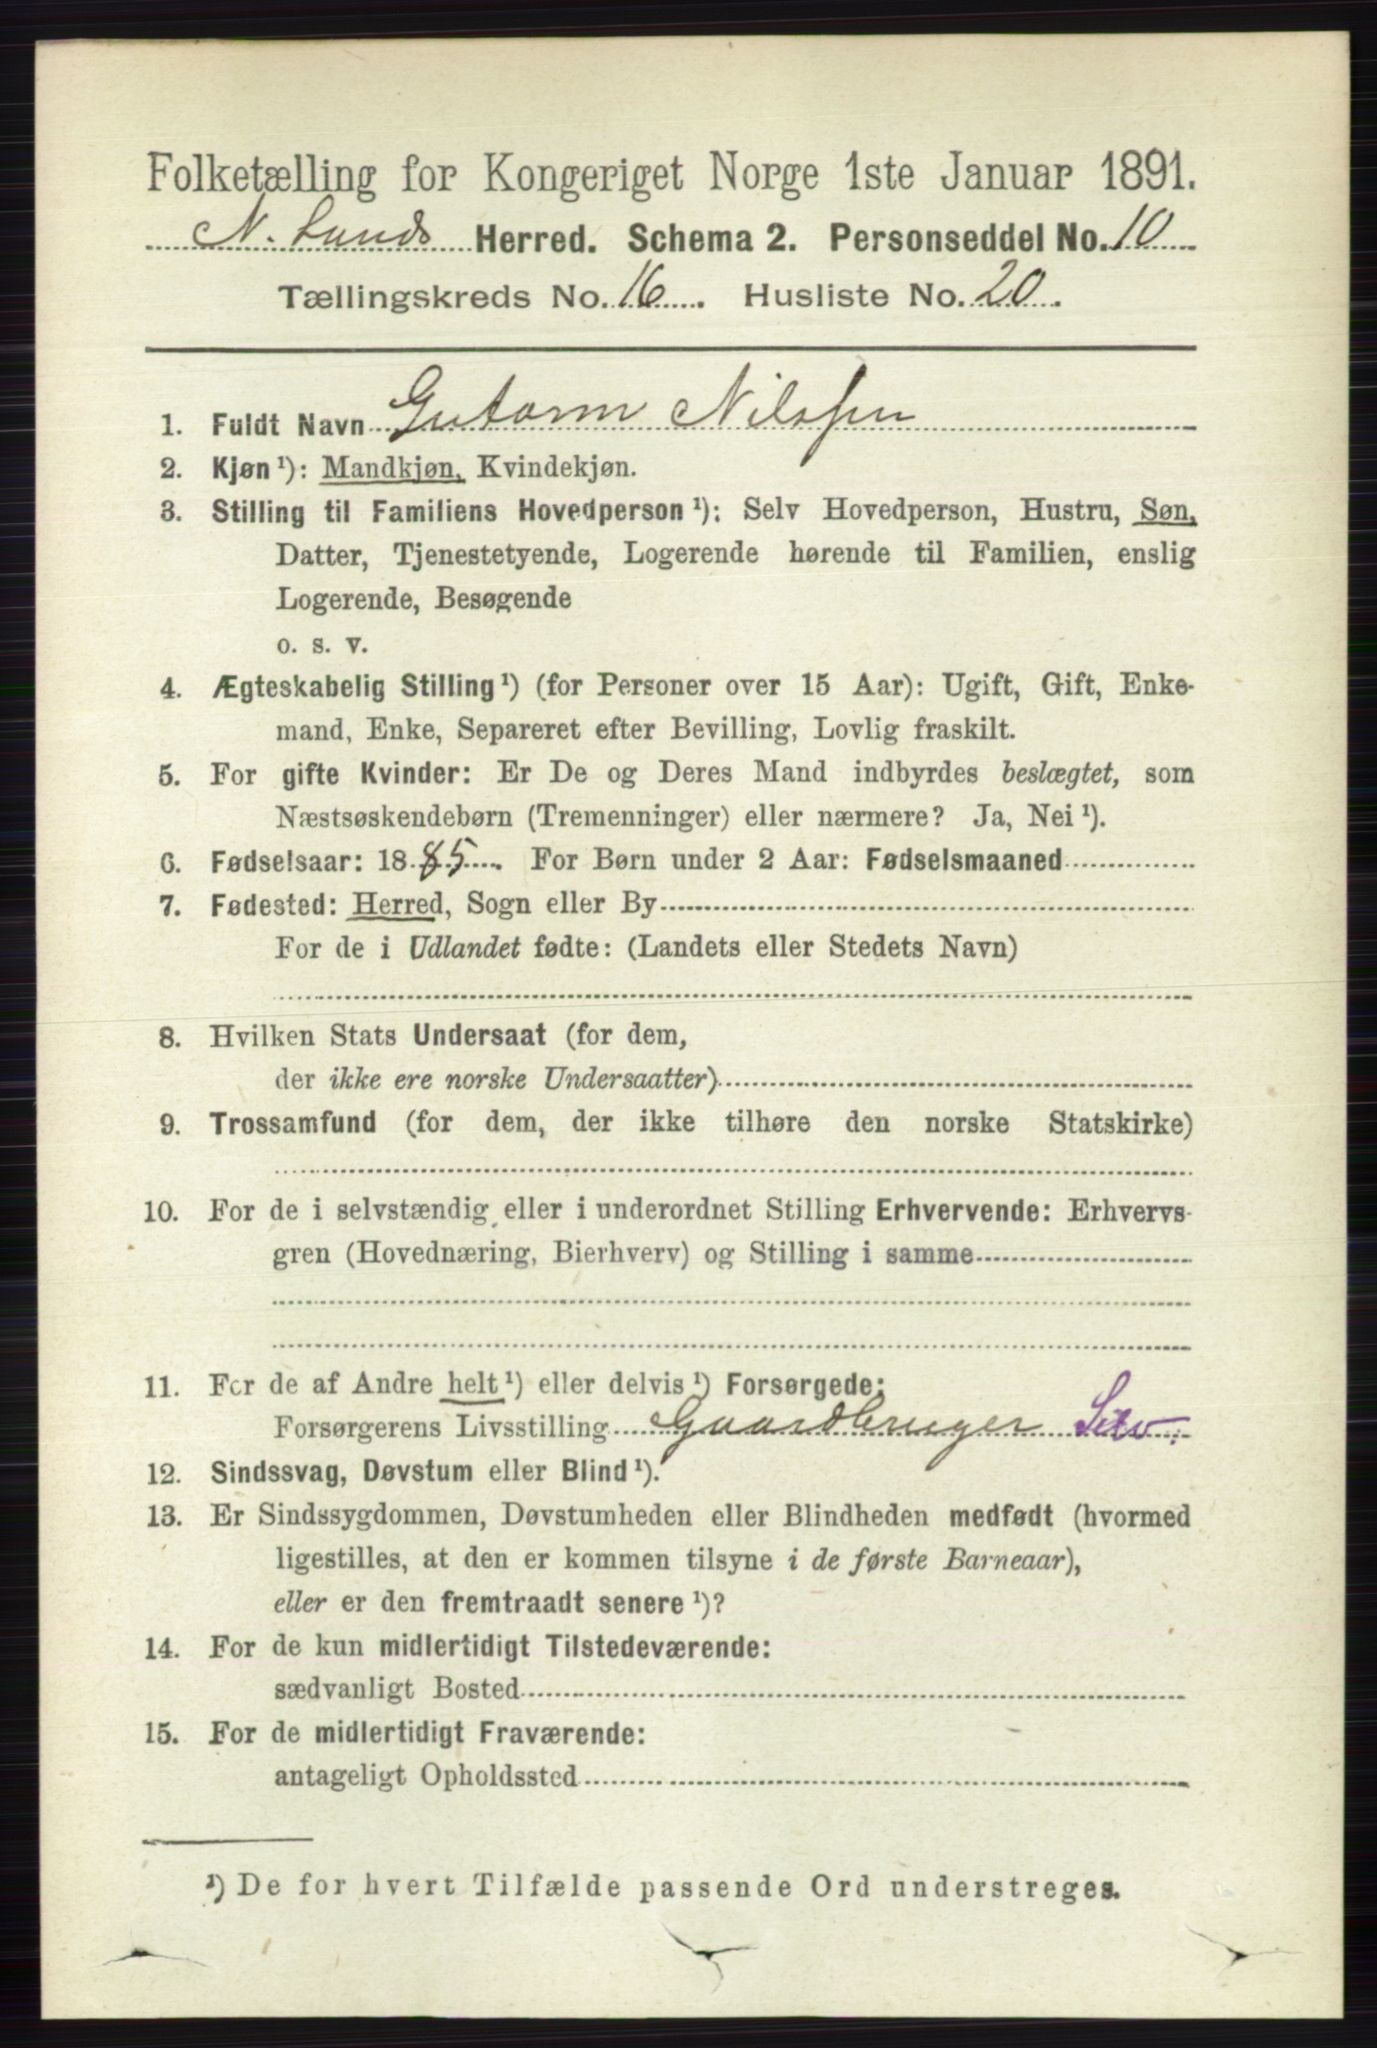 Folketælling for Kongeriget Norge 1ste Januar 1891.
N. Lands Herred. Schema 2. Personseddel No. 10
Tællingskreds No. 16. Husliste No. 20.
1. Fuldt Navn Gutorm Nilssen
2. Kjøn ¹): Mandkjøn, Kvindekjøn.
3. Stilling til Familiens Hovedperson ¹): Selv Hovedperson, Hustru, Søn,
Datter, Tjenestetyende, Logerende hørende til Familien, enslig
Logerende, Besøgende
o. s. v.
4. Ægteskabelig Stilling ¹) (for Personer over 15 Aar): Ugift, Gift, Enke-
mand, Enke, Separeret efter Bevilling, Lovlig fraskilt.
5. For gifte Kvinder: Er De og Deres Mand indbyrdes beslægtet, som
Næstsøskendebørn (Tremenninger) eller nærmere? Ja, Nei ¹).
6. Fødselsaar: 1885. For Børn under 2 Aar: Fødselsmaaned
7. Fødested: Herred, Sogn eller By
For de i Udlandet fødte: (Landets eller Stedets Navn)
8. Hvilken Stats Undersaat (for dem,
der ikke ere norske Undersaatter)
9. Trossamfund (for dem, der ikke tilhøre den norske Statskirke)
10. For de i selvstændig eller i underordnet Stilling Erhvervende: Erhvervs-
gren (Hovednæring, Bierhverv) og Stilling i samme
11. For de af Andre helt ¹) eller delvis ¹) Forsørgede:
Forsørgerens Livsstilling Gaardbruger Selv.
12. Sindssvag, Døvstum eller Blind ¹).
13. Er Sindssygdommen, Døvstumheden eller Blindheden medfødt (hvormed
ligestilles, at den er kommen tilsyne i de første Barneaar),
eller er den fremtraadt senere ¹)?
14. For de kun midlertidigt Tilstedeværende:
sædvanligt Bosted
15. For de midlertidigt Fraværende:
antageligt Opholdssted
¹) De for hvert Tilfælde passende Ord understreges.